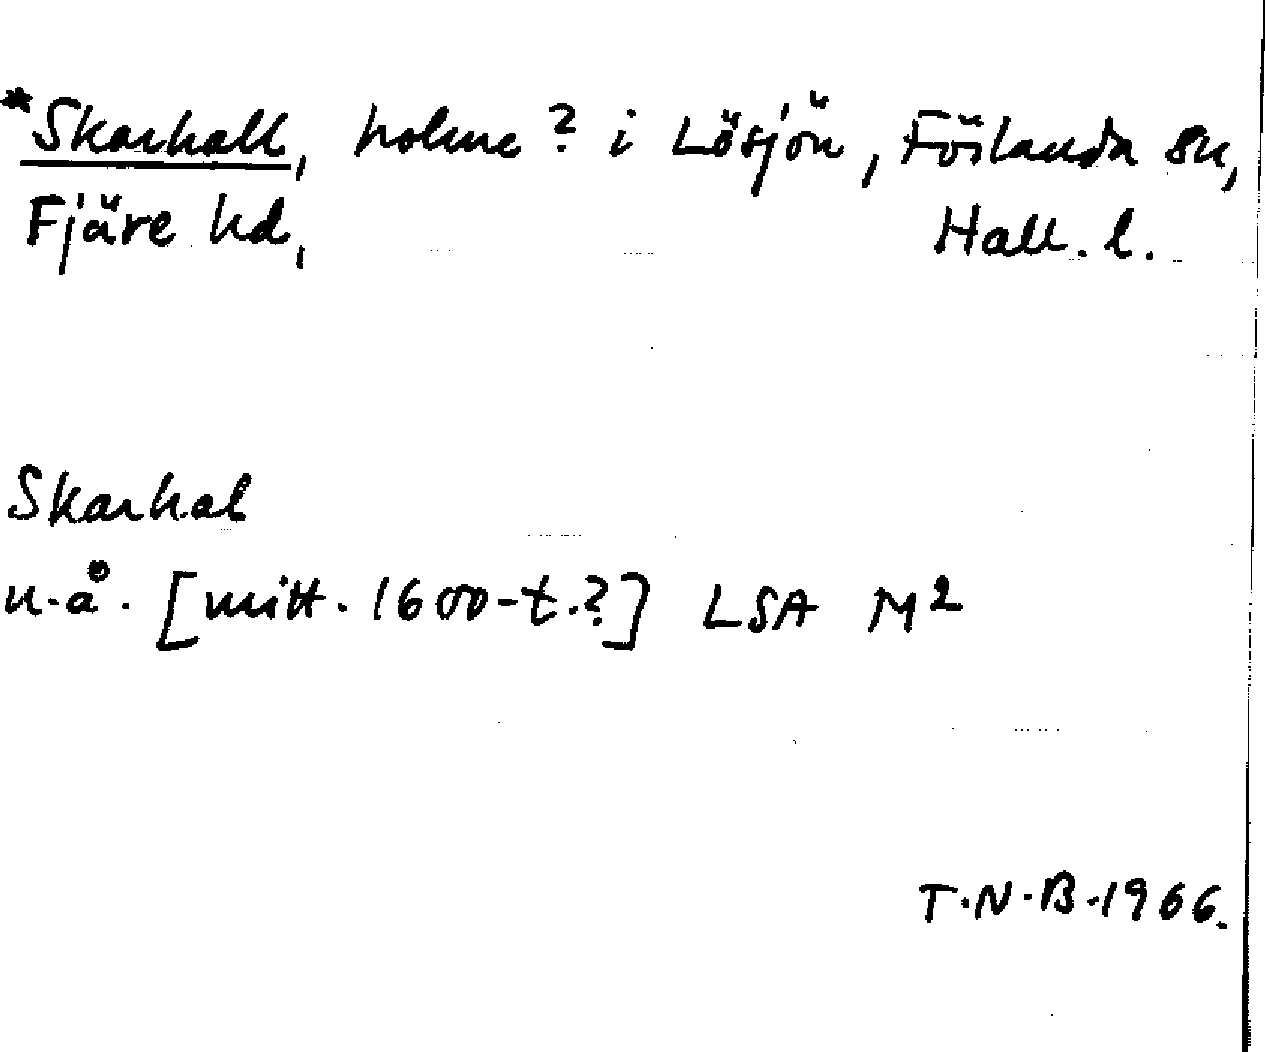 *Skarhall, holme? i Lösjön, Förlanda sn,
Fjäre hd, Hall. l.
Skarhal
u.å. [mitt. 1600-t.?] LSA M2
T.N.B. 1966.